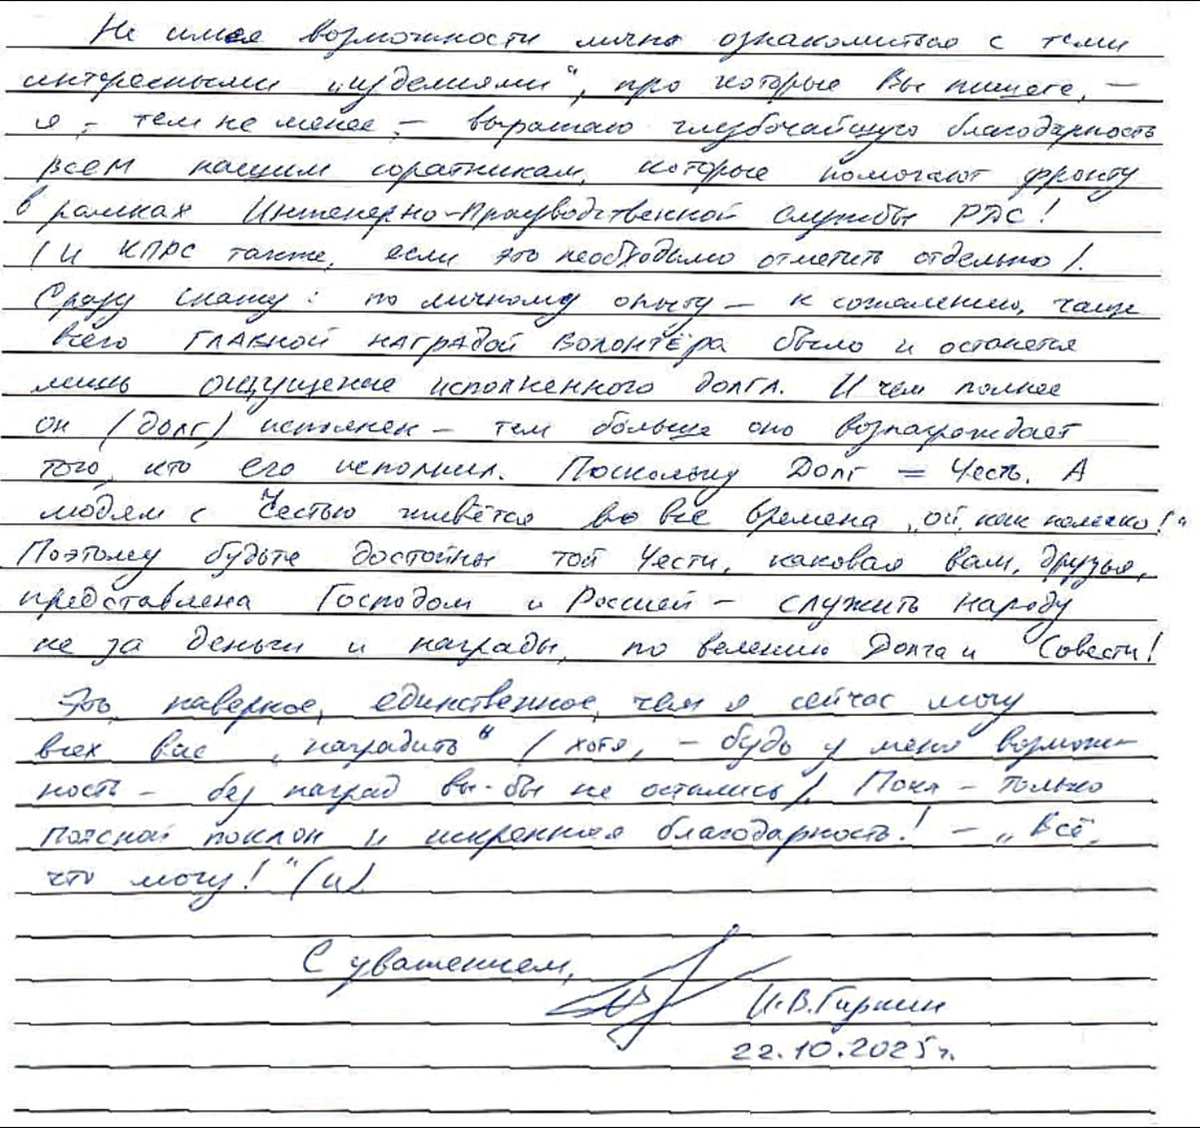 Не имея возможности лично ознакомиться с теми
интересными „изделиями“, про которые Вы пишете, —
я, – тем не менее, – выражаю глубочайшую благодарность
всем нашим соратникам, которые помогают фронту
в рамках Инженерно-Производственной Службы РДС!
(И КПРС также, если это необходимо отметить отдельно).
Сразу скажу: по личному опыту – к сожалению, чаще
всего ГЛАВНОЙ НАГРАДОЙ ВОЛОНТЁРА было и останется
лишь ощущение исполненного долга. И чем полнее
он (долг) исполнен – тем больше оно вознаграждает
того, кто его исполнил. Поскольку Долг = Честь. А
людям с Честью живётся во все времена „ой, как нелегко!“
Поэтому будьте достойны той Чести, каковая вам, друзья,
предоставлена Господом и Россией – служить народу
не за деньги и награды, по велению Долга и Совести!
Это, наверное, единственное, чем я сейчас могу
всех вас „наградить“ (хотя, – будь у меня возмож-
ность – без наград вы-бы не остались). Пока – только
поясной поклон и искренняя благодарность! – „Всё,
что могу!“ (с)
С уважением,
И.В.Гиркин
22.10.2025г.